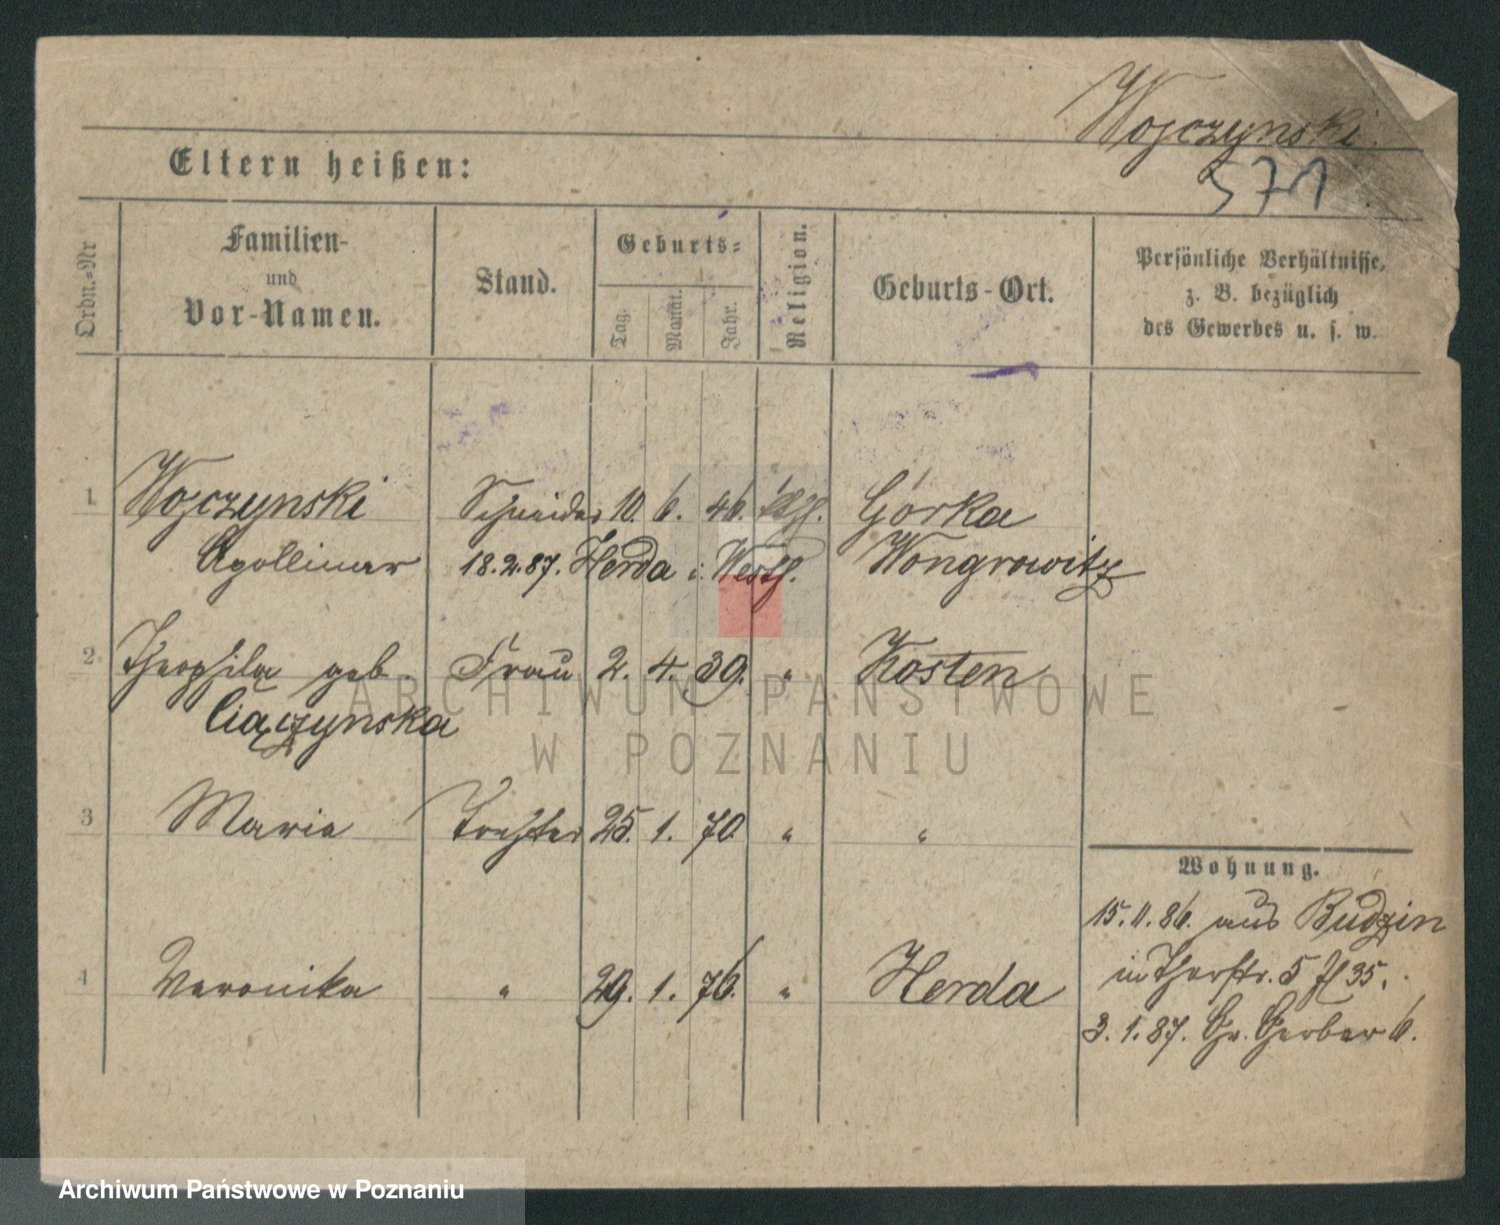 Wojczynski
571
Eltern heißen:
Ordn.-Nr
Familien-
und
Vor-Namen.
Stand.
Geburts-
Tag.
Monat.
Jahr.
Religion.
Geburts-Ort.
Persönliche Verhältnisse,
z. B. bezüglich
des Gewerbes u. s. w.
1. Wojczynski Schneider 10. 6. 46. Górka
Apollinar 18.2.87. Herda i. Westf. Wongrowitz
2. Theophila geb. Frau 2. 4. 39. " Kosten
Ciączynska
3 Maria Tochter 25. 1. 70. " "
4 Veronika " 29. 1. 76. " Herda
Wohnung.
15.11.86. aus Budzin
in 5 35.
3.1.87. Gr. Gerber 6.
ARCHIWUM PAŃSTWOWE
W POZNANIU
Archiwum Państwowe w Poznaniu